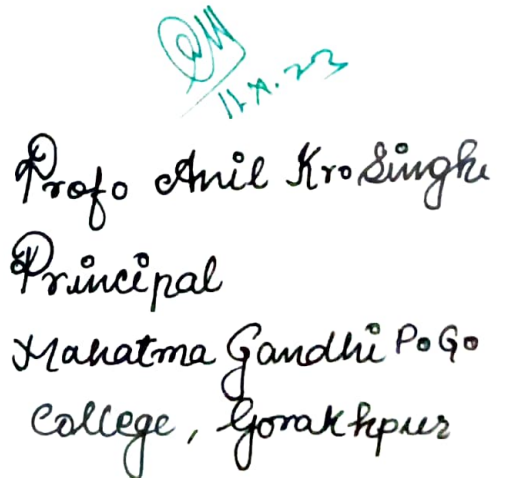 11.X.23
Prof. Anil Kr. Singh
Principal
Mahatma Gandhi P.G.
College, Gorakhpur